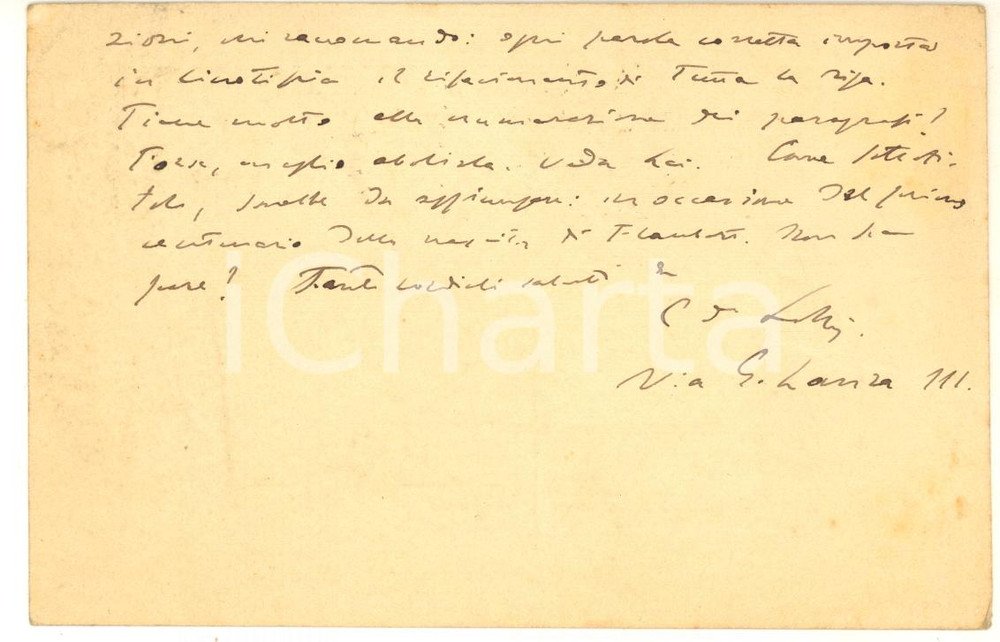 zioni, mi raccomando: ogni parola corretta importa
in linotipia il rifacimento di tutta la riga.
Tiene molto alla numerazione dei paragrafi?
Forse, meglio abolirla. Veda Lei. Come sottoti-
tolo, sarebbe da aggiungere: in occasione del primo
centenario della nascita di Flaubert. Non Le
pare? Tanti cordiali saluti da
C de Lollis.
Via G. Lanza 111.
iCharta